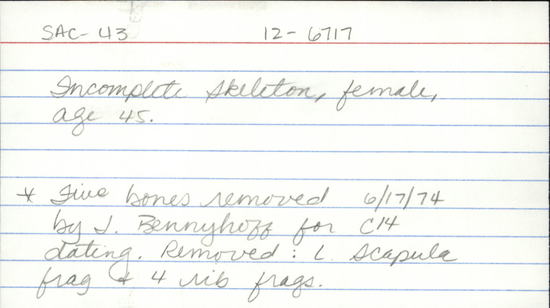 SAC-43 12-6717
Incomplete skeleton, female,
age 45.
* Five bones removed 6/17/74
by J. Bennyhoff for C14
dating. Removed: L. Scapula
frag & 4 rib frags.